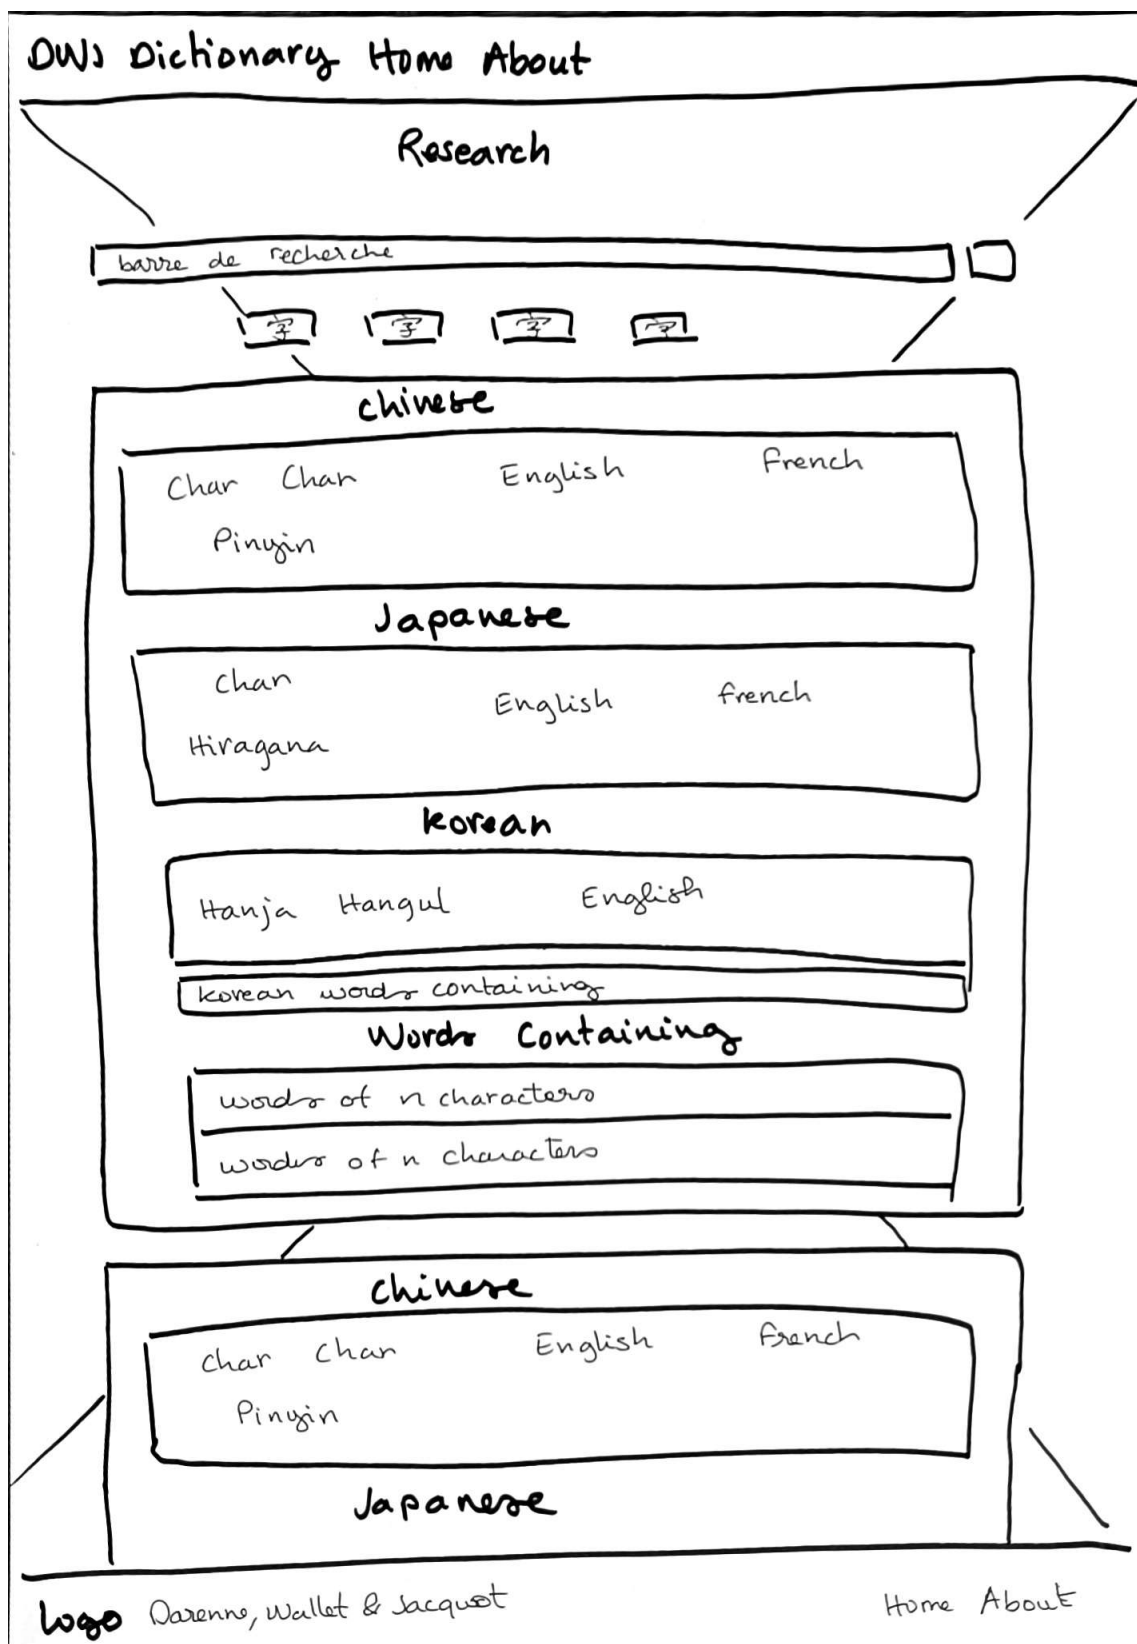 DWJ Dictionary Home About
Research
barre de recherche
字 字 字 字
Chinese
Char Char English French
Pinyin
Japanese
Char English French
Hiragana
Korean
Hanja Hangul English
korean words containing
Words Containing
words of n characters
words of n characters
Chinese
Char Char English French
Pinyin
Japanese
Logo Darenne, Wallet & Jacquot Home About